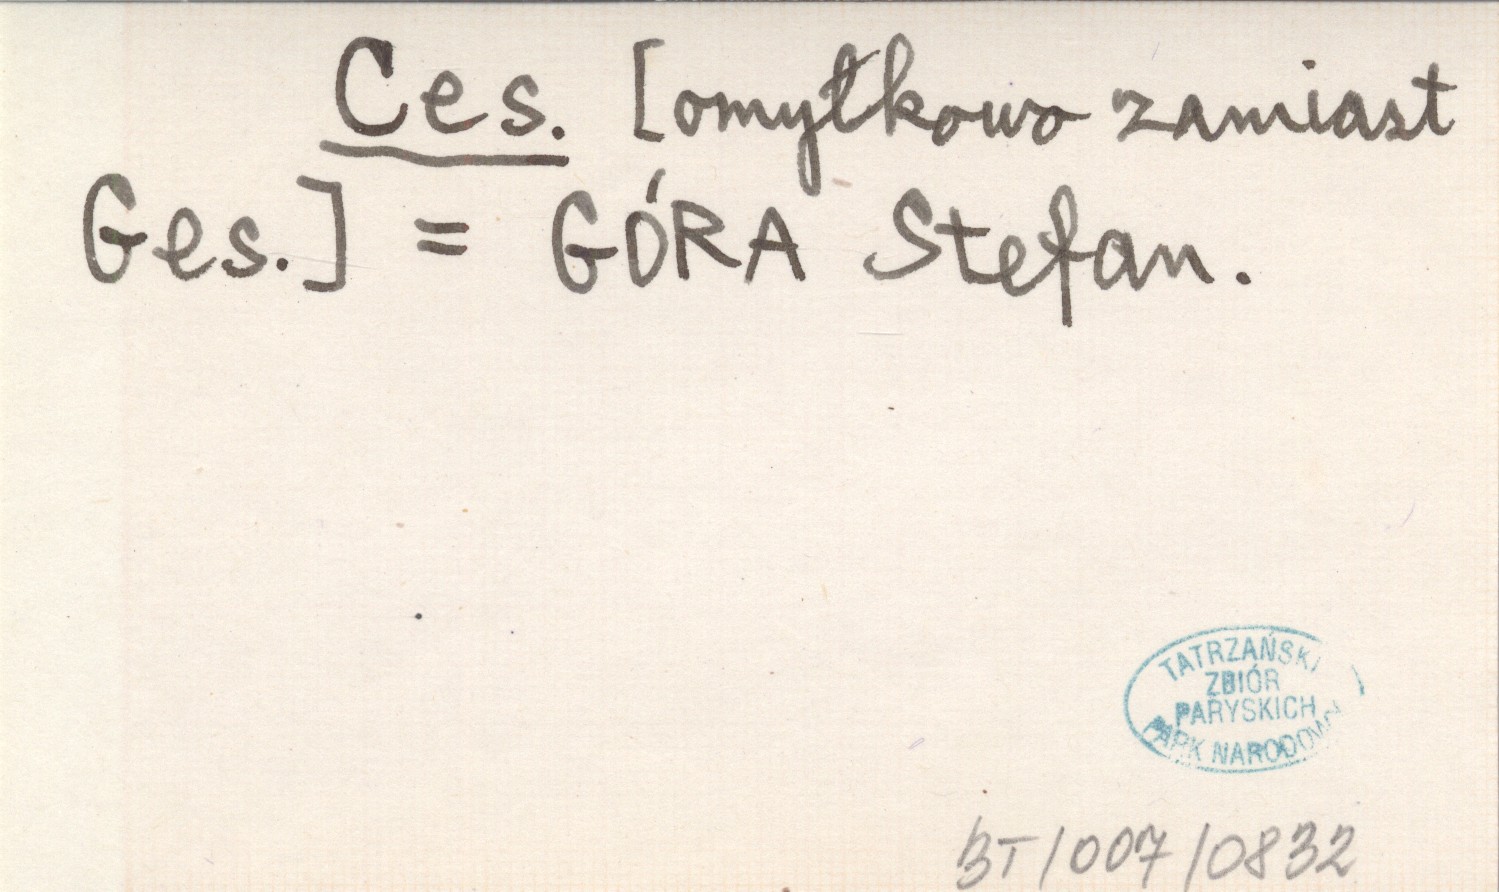 Ces. [omyłkowo zamiast
Ges.] = GÓRA Stefan.
TATRZAŃSKI
ZBIÓR
PARYSKICH
PARK NARODOWY
BT/007/0832